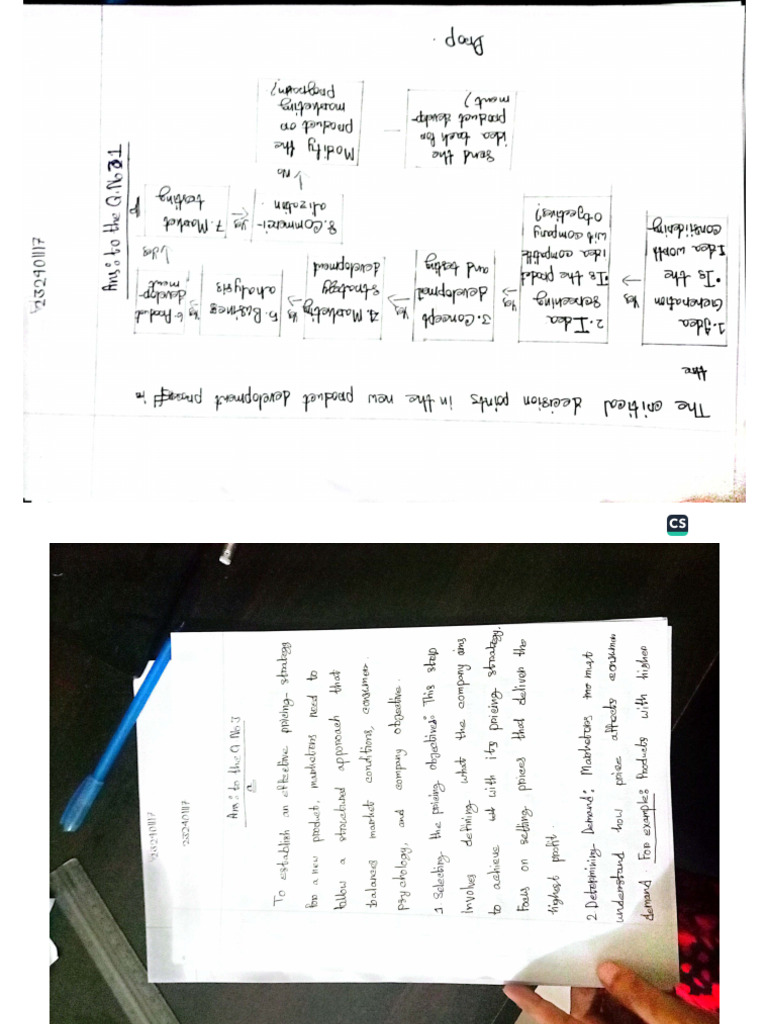 23240117
Ans: to the Q.No 1
a
The critical decision points in the new product development process in
the
1. Idea
Generation
• Is the
Idea worth
considering
Yes
2. Idea
screening
• Is the product
idea compatible
with company
objectives?
Yes
3. Concept
development
and testing
Yes
4. Marketing
strategy
development
Yes
5. Business
analysis
Yes
6. Product
develop-
ment
Yes
7. Market
testing
Yes
8. Commerci-
alization.
No
Send the
idea back for
product develop-
ment?
Modify the
product or
marketing
program?
Drop.
CS
23240117
23240117
Ans: to the Q No 3
a
To establish an effective pricing strategy
for a new product, marketers need to
follow a structured approach that
balances market conditions, consumer
psychology, and company objective.
1. Selecting the pricing objective: This step
involves defining what the company aims
to achieve with its pricing strategy.
Focus on setting prices that deliver the
highest profit.
2 Determining Demand: Marketers must
understand how price affects consumer
demand. For example: Products with higher